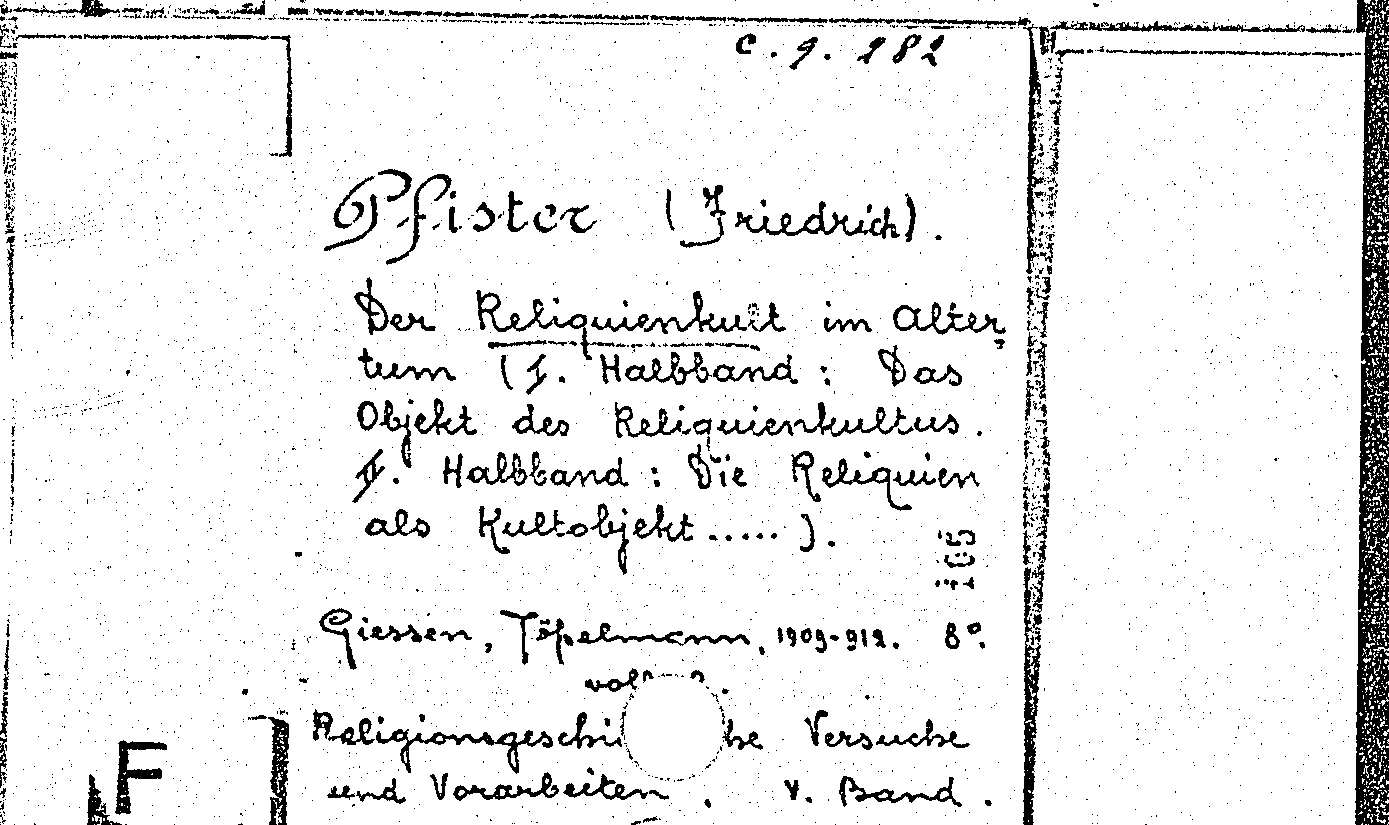 c. 9. 282
Pfister (Friedrich).
Der Reliquienkult im Alter
tum (I. Halbband : Das
Objekt des Reliquienkultus.
II. Halbband : Die Reliquien
als Kultobjekt.....).
105
Giessen, Töpelmann, 1909-912. 8º.
Versuche
und Vorarbeiten. V. Band.
F